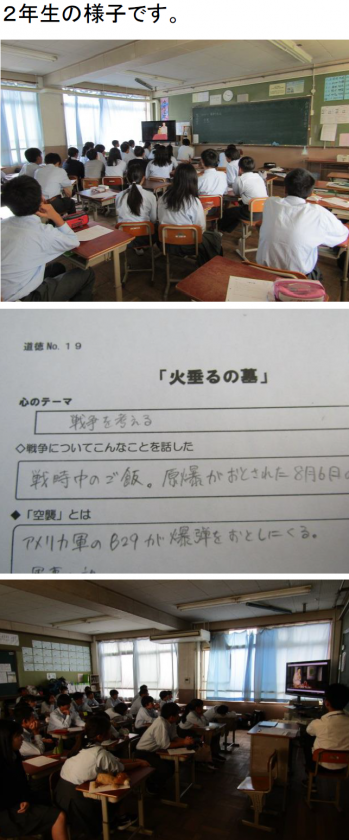 ２年生の様子です。
道徳 No.19
「火垂るの墓」
心のテーマ
戦争を考える
◇戦争についてこんなことを話した
戦時中のご飯。原爆がおとされた8月6日
◆「空襲」とは
アメリカ軍のB29が爆弾をおとしにくる。